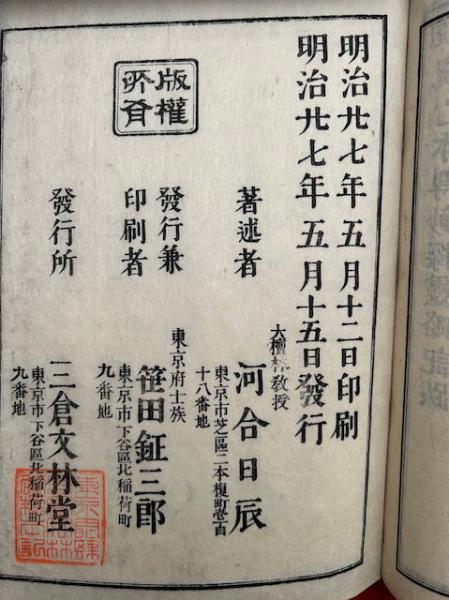 明治廿七年五月十二日印刷
明治廿七年五月十五日發行
版權
所有
著述者
大檀林教授
河合日辰
東京市芝區二本榎町壱百
十八番地
發行兼
印刷者
東京府士族
笹田鉦三郎
東京市下谷區北稲荷町
九番地
發行所
三倉文林堂
東京市下谷區北稲荷町
九番地